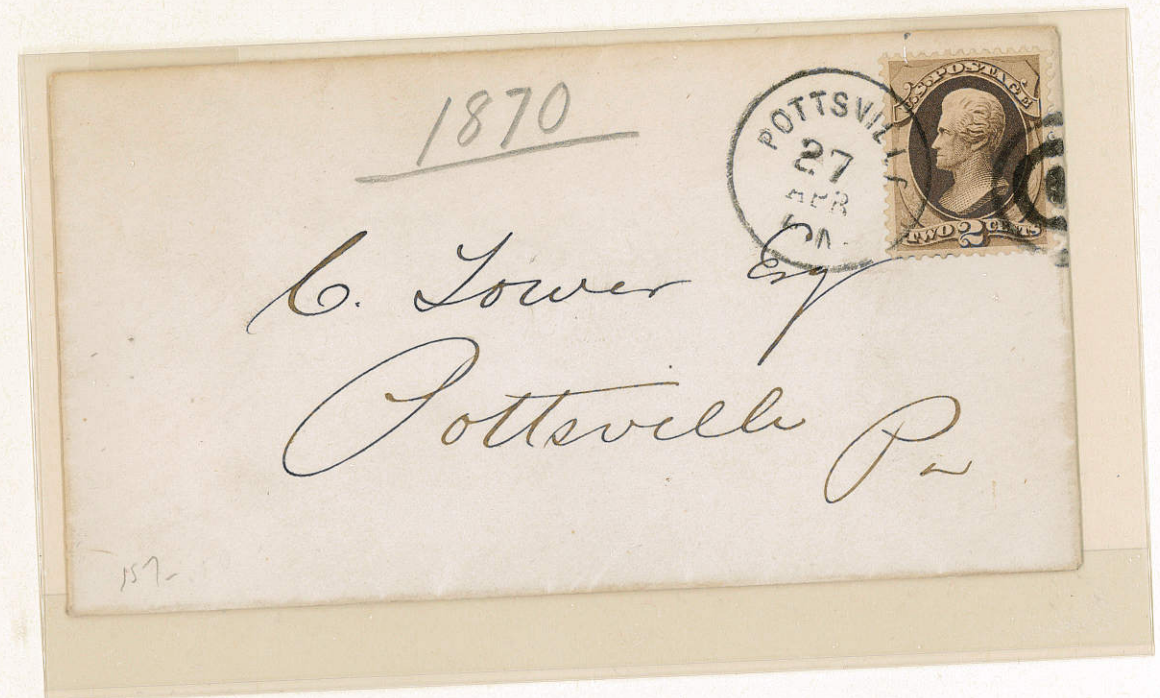 1870
POTTSVILLE
27
APR
PA.
U.S. POSTAGE
TWO 2 CENTS
C. Lower Esq
Pottsville Pa
157-